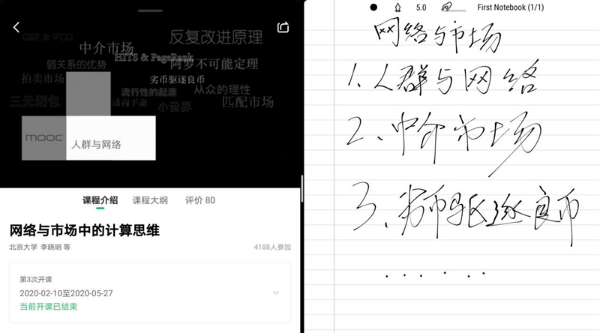 中介市场
反复改进原理
HITS & PageRank
弱关系的优势
阿罗不可能定理
拍卖市场
劣币驱逐良币
流行性的起源
从众的理性
三元闭包
清尚平衡
小世界
匹配市场
MOOC
人群与网络
课程介绍
课程大纲
评价 80
网络与市场中的计算思维
北京大学 李晓明 等
4188人参加
第3次开课
2020-02-10至2020-05-27
当前开课已结束
5.0
First Notebook (1/1)
网络与市场
1、人群与网络
2、中介市场
3、劣币驱逐良币
......